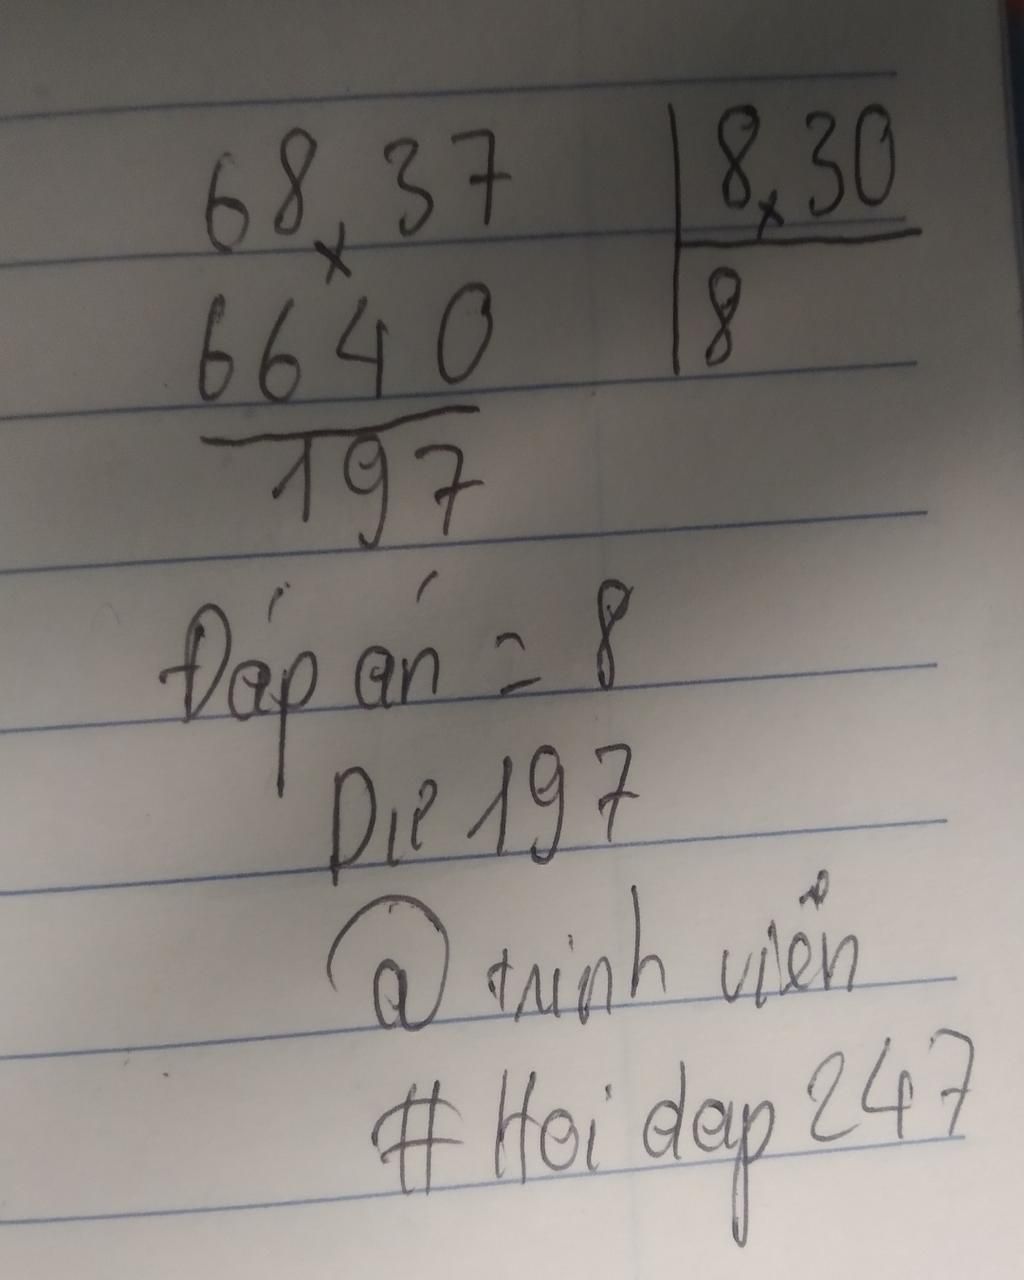 68,37 8,30
x x
6640 8
197
Đáp án = 8
Dư 197
@ trinh viển
# Hoi dap 247